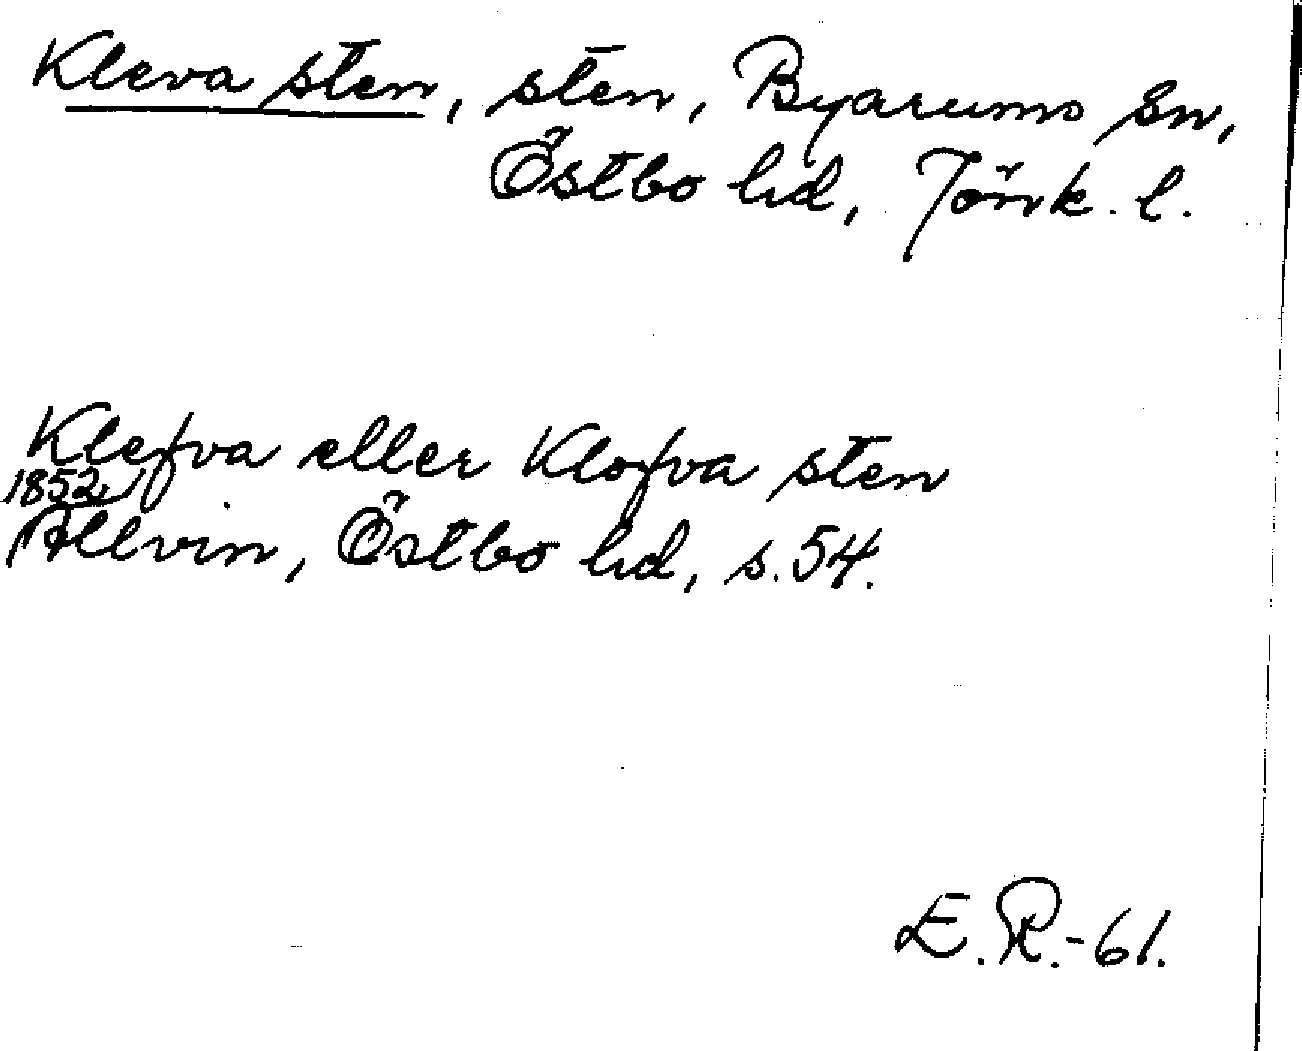 Kleva sten, sten, Byarums sn,
Östbo hd, Jönk. l.
Klefva eller Klofva sten
1852.
Allvin, Östbo hd, s. 54.
E. R.-61.